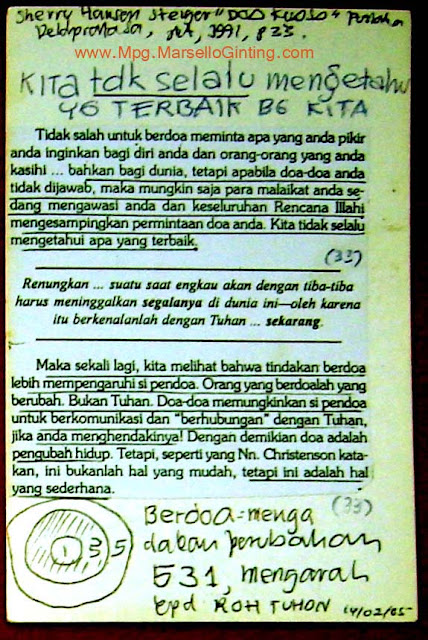 Sherry Hansen Steiger "DOA Kuasa"
Delapratasa, jkt, 1991, p 33.
www.Mpg.MarselloGinting.com
KITA tdk selalu mengetahu
YG TERBAIK BG KITA
Tidak salah untuk berdoa meminta apa yang anda pikir
anda inginkan bagi diri anda dan orang-orang yang anda
kasihi ... bahkan bagi dunia, tetapi apabila doa-doa anda
tidak dijawab, maka mungkin saja para malaikat anda se-
dang mengawasi anda dan keseluruhan Rencana Illahi
mengesampingkan permintaan doa anda. Kita tidak selalu
mengetahui apa yang terbaik.
(33)
Renungkan ... suatu saat engkau akan dengan tiba-tiba
harus meninggalkan segalanya di dunia ini—oleh karena
itu berkenalanlah dengan Tuhan ... sekarang.
Maka sekali lagi, kita melihat bahwa tindakan berdoa
lebih mempengaruhi si pendoa. Orang yang berdoalah yang
berubah. Bukan Tuhan. Doa-doa memungkinkan si pendoa
untuk berkomunikasi dan "berhubungan" dengan Tuhan,
jika anda menghendakinya! Dengan demikian doa adalah
pengubah hidup. Tetapi, seperti yang Nn. Christenson kata-
kan, ini bukanlah hal yang mudah, tetapi ini adalah hal
yang sederhana.
(33)
1 3 5
Berdoa=menga
dakan perubahan
531, mengarah
kpd ROH TUHAN
14/02/05